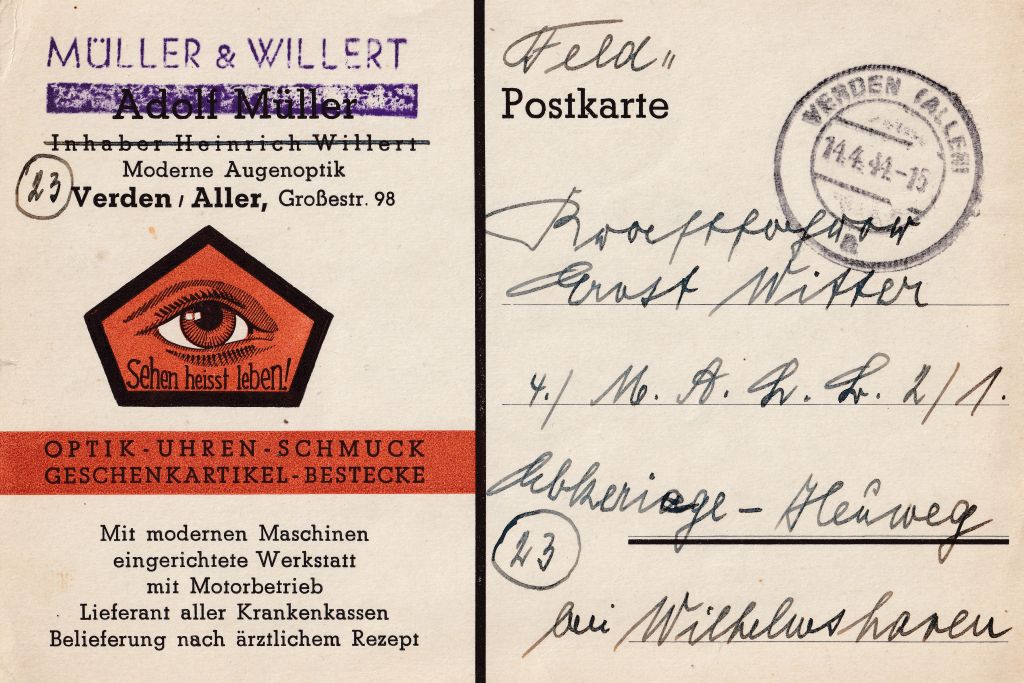 MÜLLER & WILLERT
Adolf Müller
Inhaber Heinrich Willert
Moderne Augenoptik
23
Verden / Aller, Großestr. 98
Sehen heisst leben!
OPTIK - UHREN - SCHMUCK
GESCHENKARTIKEL - BESTECKE
Mit modernen Maschinen
eingerichtete Werkstatt
mit Motorbetrieb
Lieferant aller Krankenkassen
Belieferung nach ärztlichem Rezept
Feld"
Postkarte
VERDEN (ALLER)
14.4.44.-15
a
Ernst Witter
4./ M. A.
2/1.
Ebkeriege - Heuweg
23
bei Wilhelmshaven